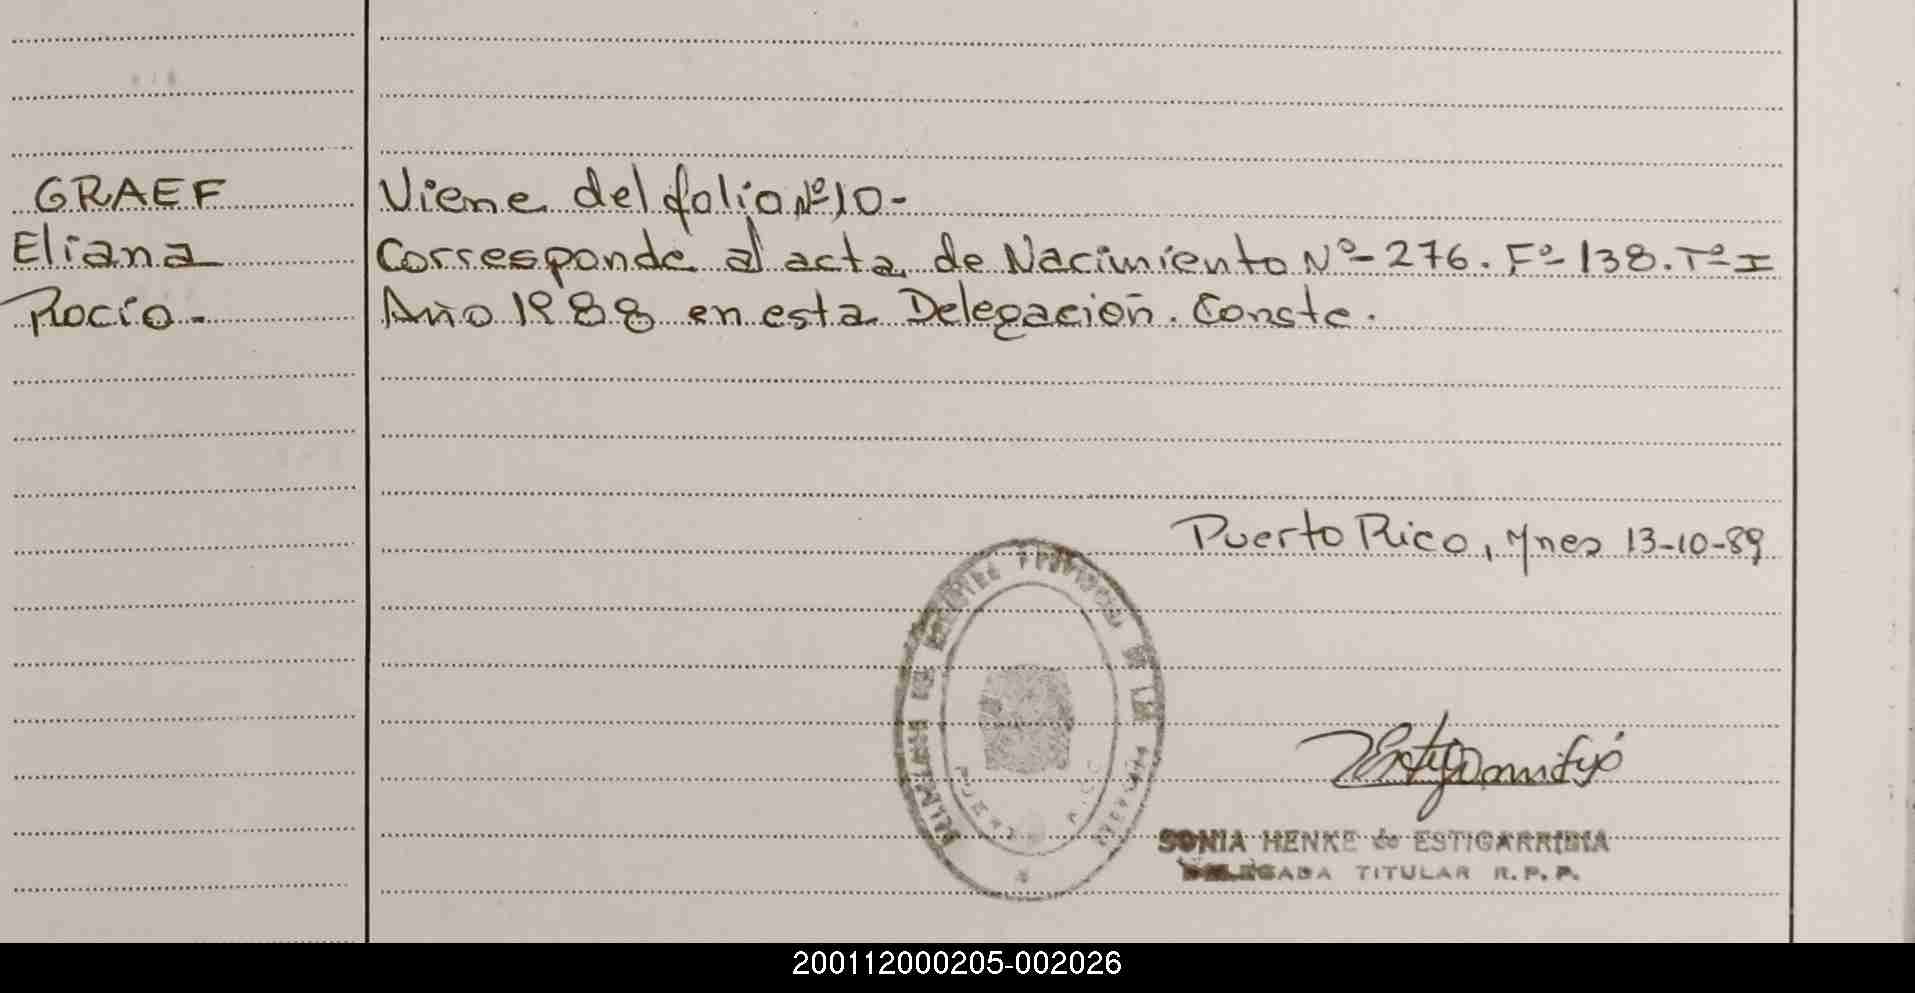 GRAEF
Eliana
Rocío.-
Viene del folio Nº 10-
Corresponde al acta de Nacimiento Nº- 276. Fº- 138. Tº- I
Año 1988 en esta Delegación. Conste.
Puerto Rico, Mnes 13-10-89
SONIA HENKE de ESTIGARRIBIA
DELEGADA TITULAR R.P.P.
200112000205-002026